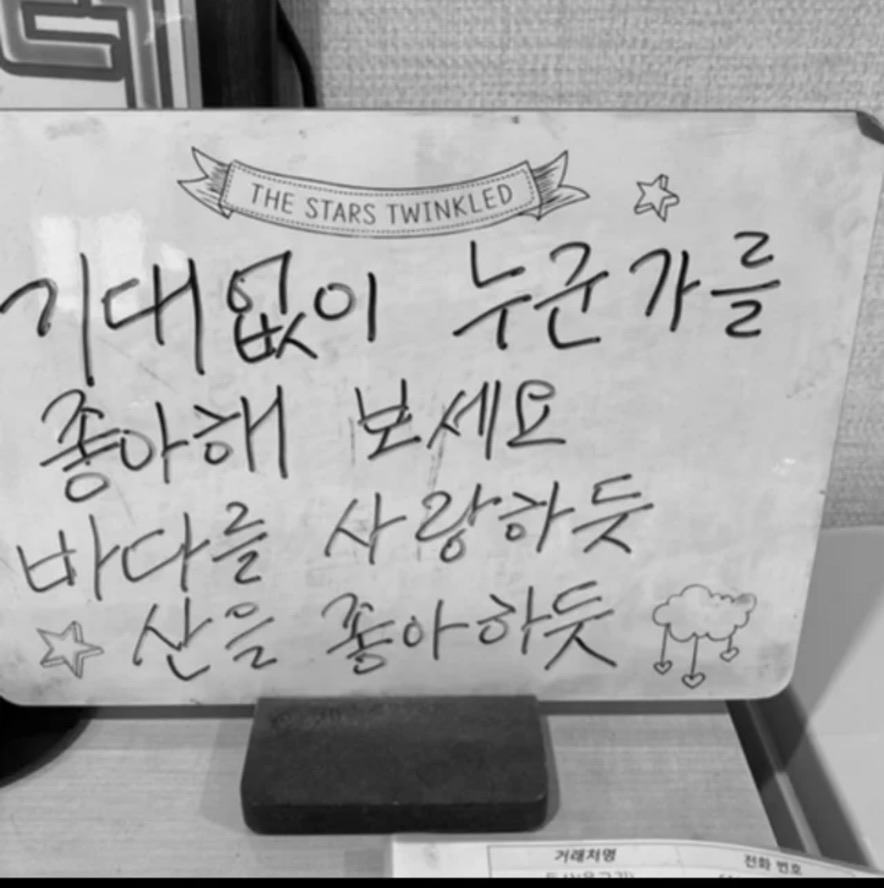 THE STARS TWINKLED
기대없이 누군가를
좋아해 보세요
바다를 사랑하듯
산을 좋아하듯
거래처명 전화 번호